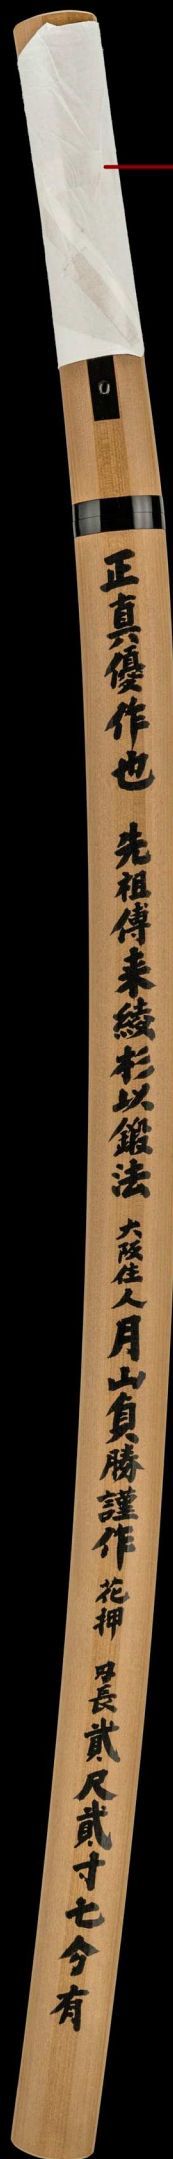 正真優作也 先祖傳来綾杉以鍛法 大阪住人月山貞勝謹作 花押 刃長貳尺貳寸七分有